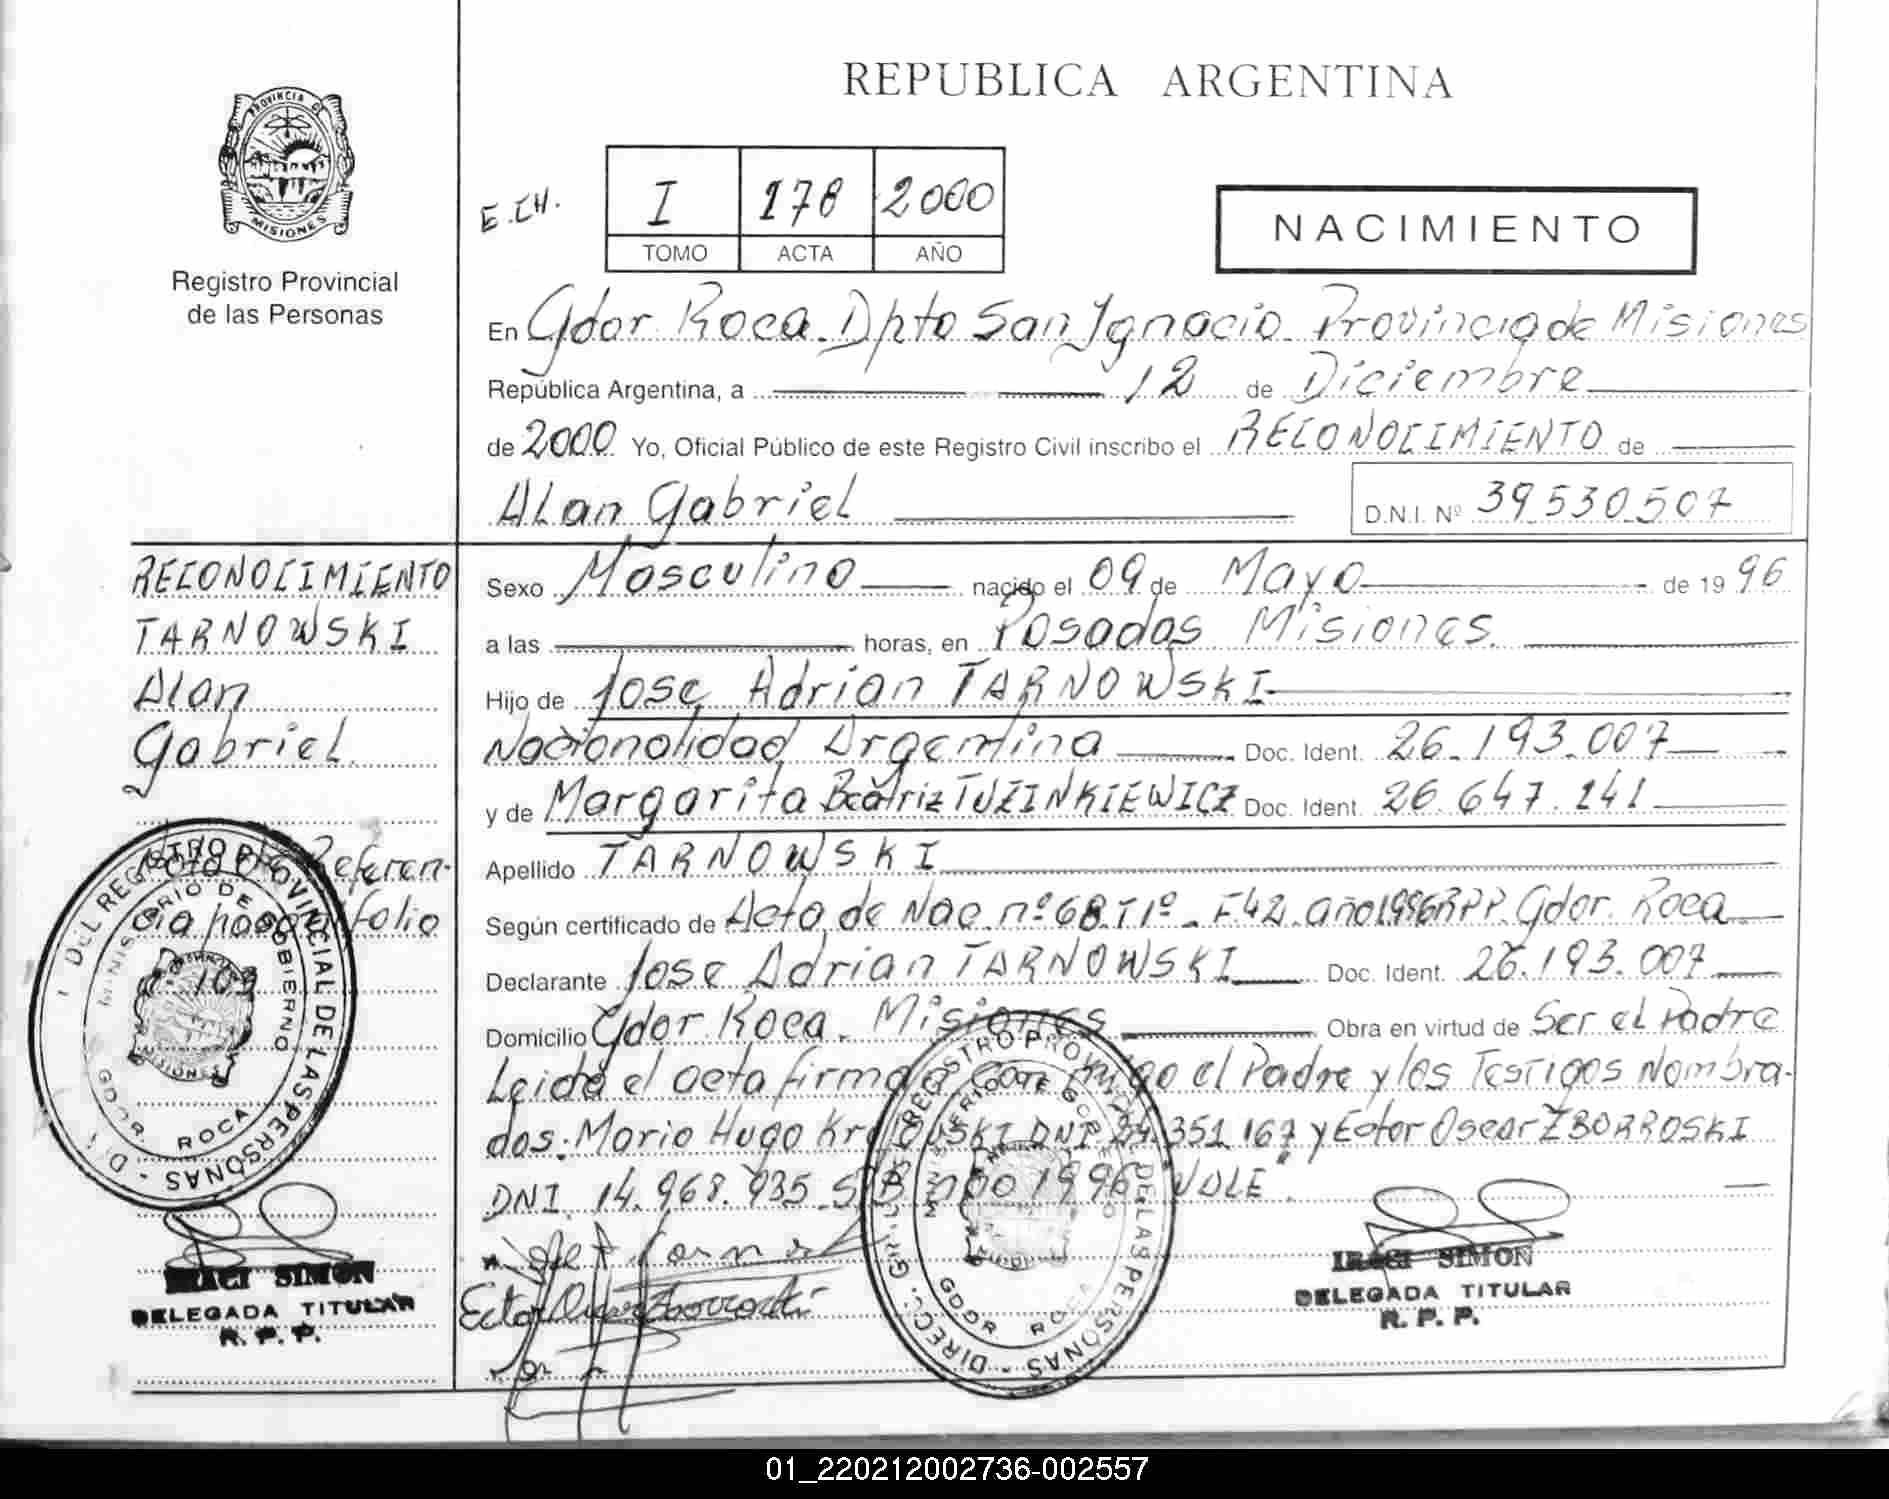 REPUBLICA ARGENTINA
PROVINCIA DE
MISIONES
Registro Provincial
de las Personas
E.CH.
I 178 2000
TOMO ACTA AÑO
NACIMIENTO
En Gdor Roca. Dpto San Ignacio. Provincia de Misiones
República Argentina, a 12 de Diciembre
de 2000 Yo, Oficial Público de este Registro Civil inscribo el RECONOCIMIENTO de
Alan Gabriel
D.N.I. Nº 39.530.507
RECONOCIMIENTO
TARNOWSKI
Alan
Gabriel.
Nota de Referen-
cia pasa folio
109
Sexo Masculino nacido el 09 de Mayo de 1996
a las horas, en Posadas Misiones.
Hijo de Jose Adrian TARNOWSKI
Nacionalidad Argentina Doc. Ident. 26.193.007
y de Margarita Beatriz TUZINKIEWICZ Doc. Ident. 26.647.141
Apellido TARNOWSKI
Según certificado de Acta de Nac. nº 68 T1º - F42 año 1996 RPP Gdor. Roca
Declarante Jose Adrian TARNOWSKI Doc. Ident. 26.193.007
Domicilio Gdor. Roca. Misiones Obra en virtud de Ser el Padre
Leida el acta firma el Padre y los Testigos Nombra-
dos: Mario Hugo DNI 351.167 y Ector Oscar ZBORROSKI
DNI. 14.968.935 1996 VALE.
Ector Oscar Zborroski
DEL REGISTRO PROVINCIAL DE LAS PERSONAS
MINISTERIO DE GOBIERNO
GDOR. ROCA
MISIONES
DIRECC. GRAL. DEL REGISTRO PROVINCIAL DE LAS PERSONAS
MINISTERIO DE GOBIERNO
GDOR. ROCA
IRACI SIMON
DELEGADA TITULAR
R. P. P.
IRACI SIMON
DELEGADA TITULAR
R. P. P.
01_220212002736-002557